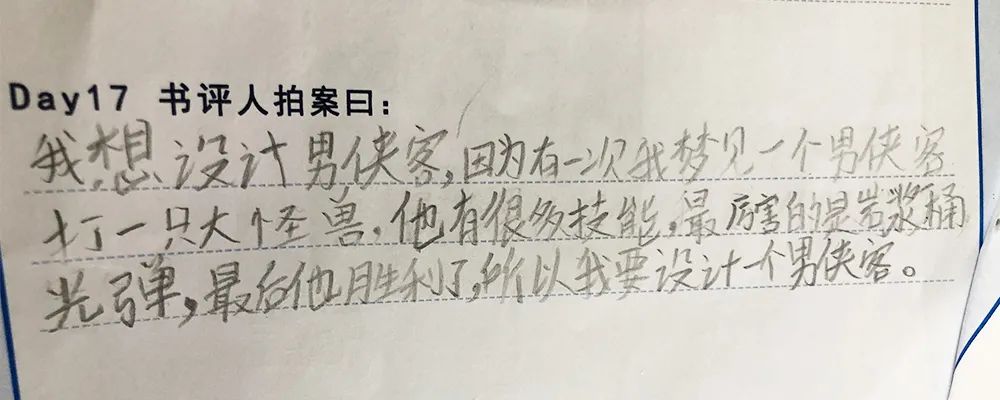 Day17 书评人拍案曰：
我想设计男侠客，因为有一次我梦见一个男侠客
打一只大怪兽，他有很多技能，最厉害的是岩浆桶
光弹，最后他胜利了，所以我要设计一个男侠客。